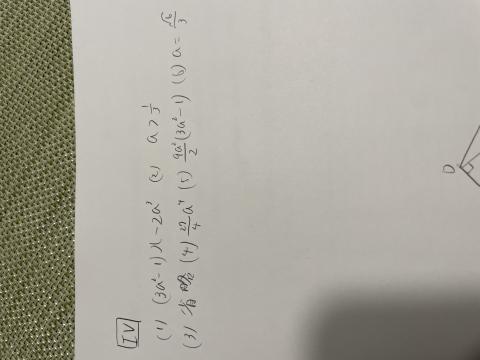 IV
(1) (3a²-1)x-2a³ (2) a > 1/3
(3) 省略 (4) 27/4 a⁴ (5) 9a²/2 (3a²-1) (6) a = √6/3
D